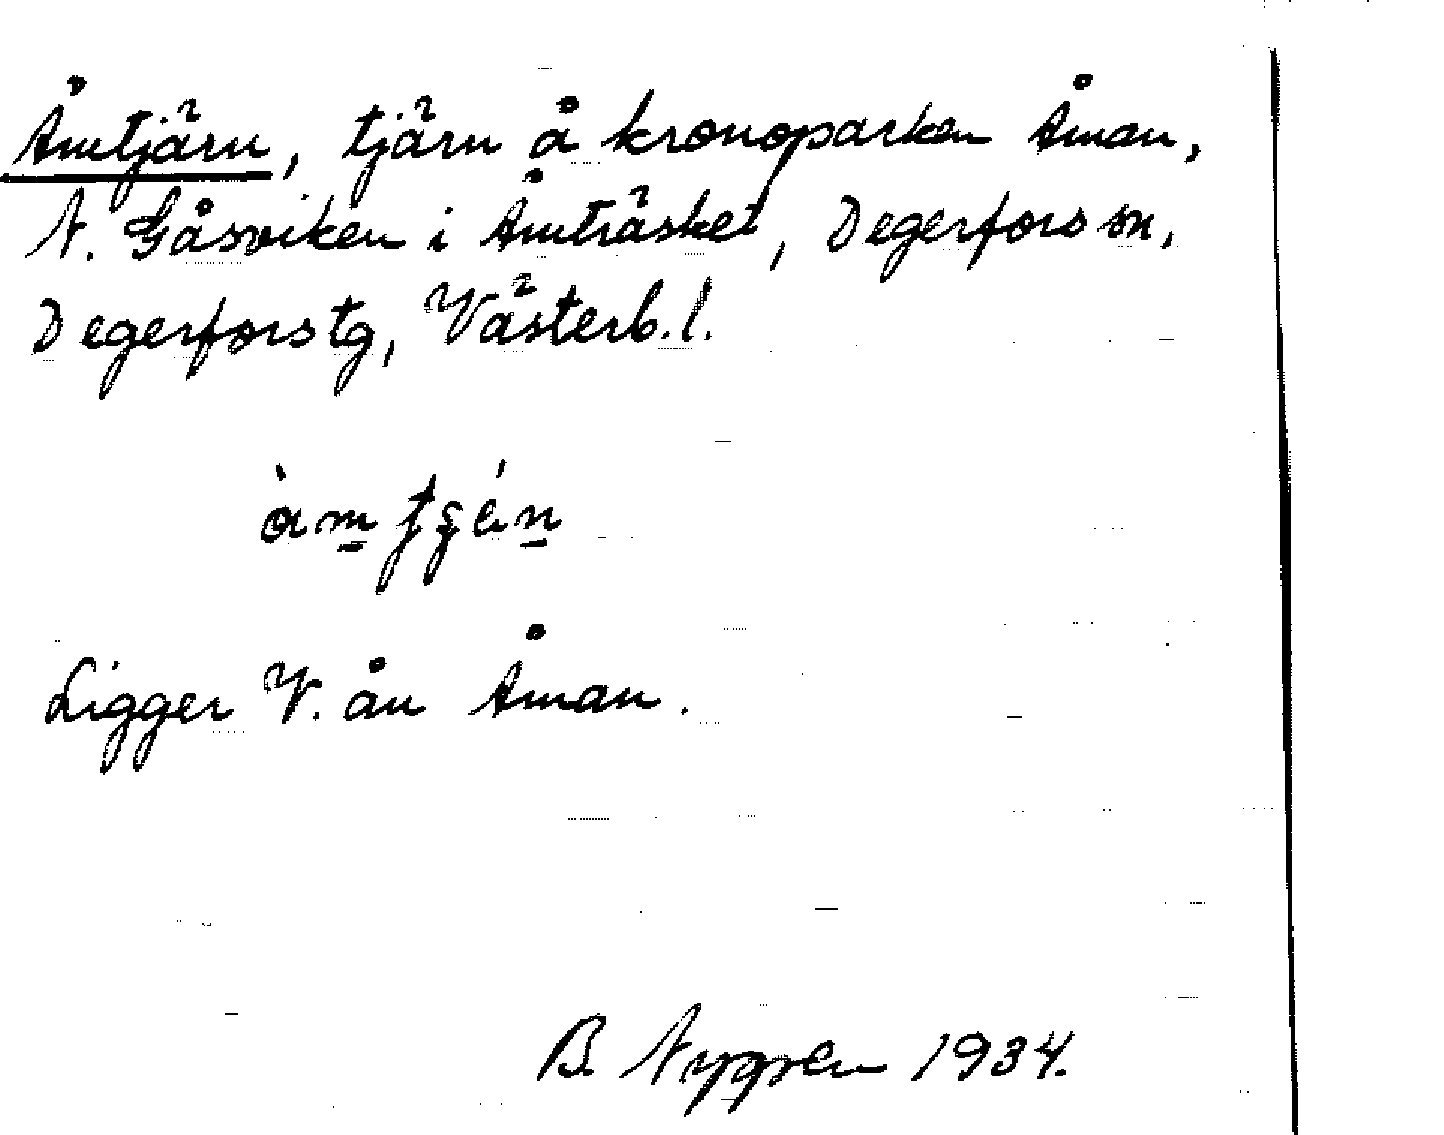 Åmtjärn, tjärn å kronoparken Åman,
N. Gåsviken i Åmträsket, Degerfors sn,
Degerfors tg, Västerb. l.
Ligger V. ån Åman.
B. Nygren 1934.